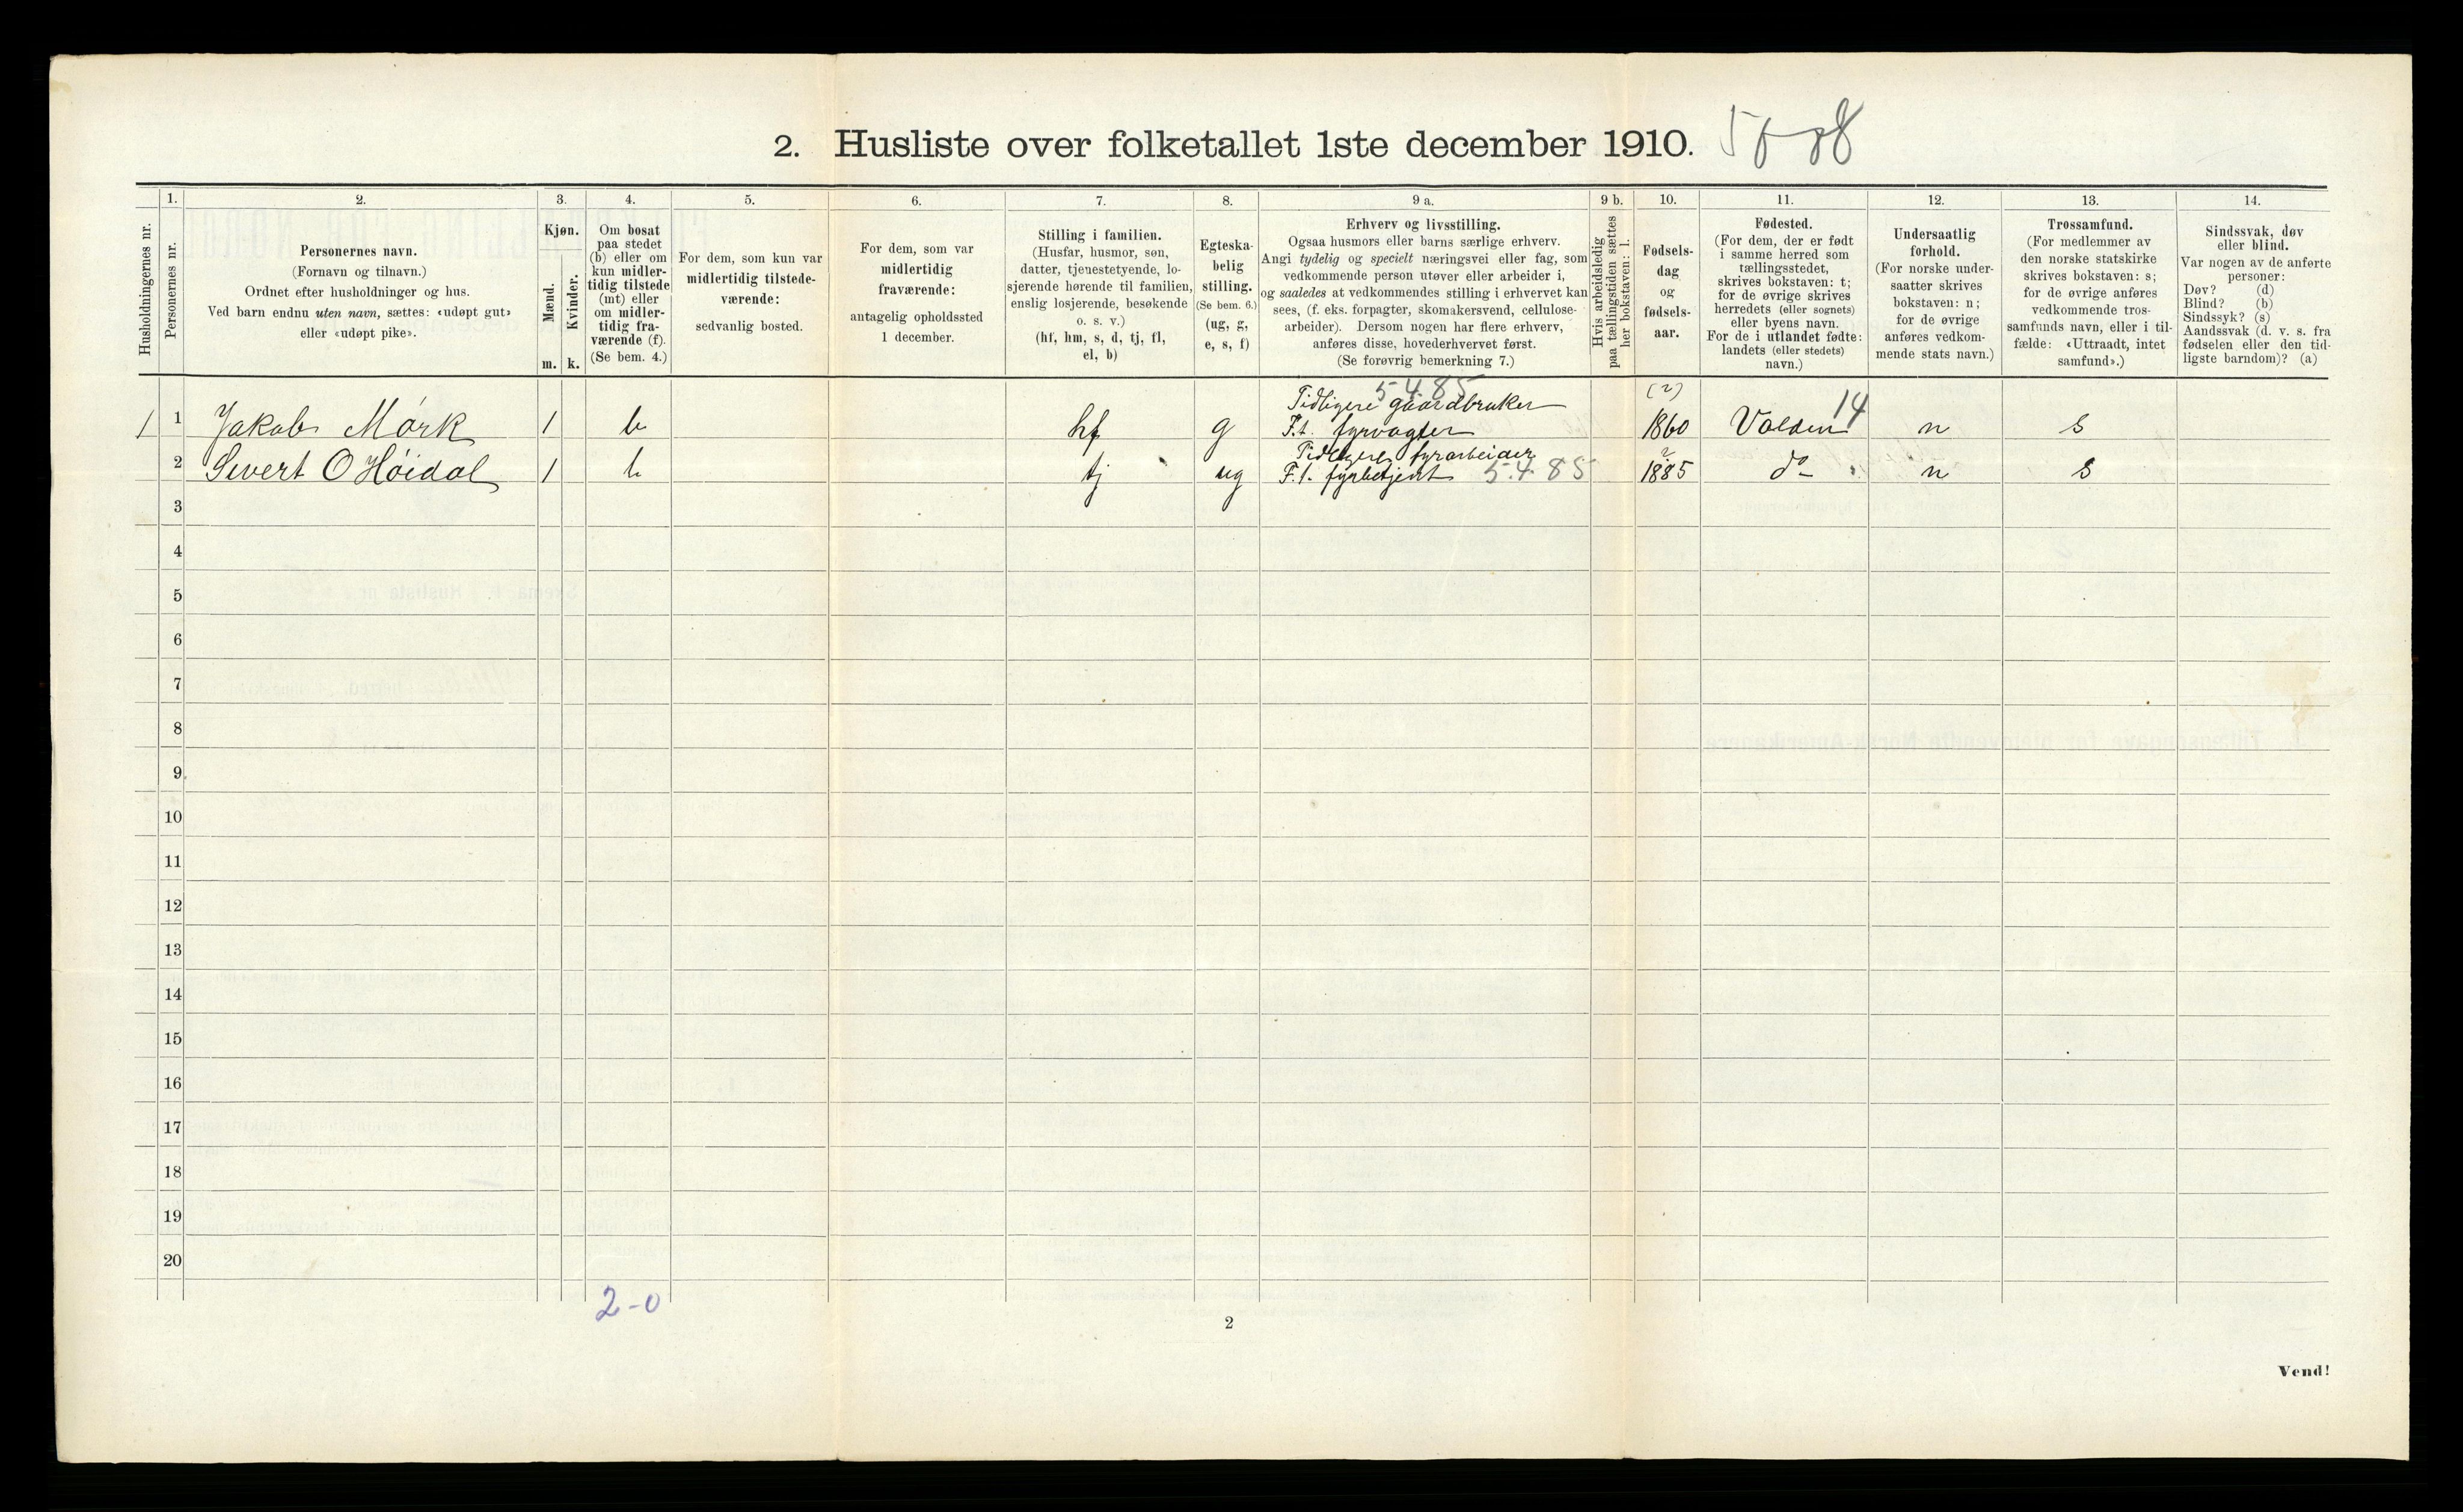 2. Husliste over folketallet 1ste december 1910.
Husholdningernes nr.
1.
Personernes nr.
2.
Personernes navn.
(Fornavn og tilnavn.)
Ordnet efter husholdninger og hus.
Ved barn endnu uten navn, sættes: «udøpt gut»
eller «udøpt pike».
3.
Kjøn.
Mænd.
Kvinder.
m. k.
4.
Om bosat
paa stedet
(b) eller om
kun midler-
tidig tilstede
(mt) eller
om midler-
tidig fra-
værende (f).
(Se bem. 4.)
5.
For dem, som kun var
midlertidig tilstede-
værende:
sedvanlig bosted.
6.
For dem, som var
midlertidig
fraværende:
antagelig opholdssted
1 december.
7.
Stilling i familien.
(Husfar, husmor, søn,
datter, tjenestetyende, lo-
sjerende hørende til familien,
enslig losjerende, besøkende
o. s. v.)
(hf, hm, s, d, tj, fl,
el, b)
8.
Egteska-
belig
stilling.
(Se bem. 6.)
(ug, g,
e, s, f)
9 a.
Erhverv og livsstilling.
Ogsaa husmors eller barns særlige erhverv.
Angi tydelig og specielt næringsvei eller fag, som
vedkommende person utøver eller arbeider i,
og saaledes at vedkommendes stilling i erhvervet kan
sees, (f. eks. forpagter, skomakersvend, cellulose-
arbeider). Dersom nogen har flere erhverv,
anføres disse, hovederhvervet først.
(Se forøvrig bemerkning 7.)
9 b.
Hvis arbeidsledig
paa tællingstiden sættes
her bokstaven: l.
10.
Fødsels-
dag
og
fødsels-
aar.
11.
Fødested.
(For dem, der er født
i samme herred som
tællingsstedet,
skrives bokstaven: t;
for de øvrige skrives
herredets (eller sognets)
eller byens navn.
For de i utlandet fødte:
landets (eller stedets)
navn.)
12.
Undersaatlig
forhold.
(For norske under-
saatter skrives
bokstaven: n;
for de øvrige
anføres vedkom-
mende stats navn.)
13.
Trossamfund.
(For medlemmer av
den norske statskirke
skrives bokstaven: s;
for de øvrige anføres
vedkommende tros-
samfunds navn, eller i til-
fælde: «Uttraadt, intet
samfund».)
14.
Sindssvak, døv
eller blind.
Var nogen av de anførte
personer:
Døv? (d)
Blind? (b)
Sindssyk? (s)
Aandssvak (d. v. s. fra
fødselen eller den tid-
ligste barndom)? (a)
5485
Tidligere gaardbruker
1 1 Jakob Mörk 1 b hf g F.t. fyrvogter 1860 Volden 14 n s
Tidligere fyrarbeider
2 Sivert O Höidal 1 b tj ug F.t. fyrbetjent 5485 1885 do n s
3
4
5
6
7
8
9
10
11
12
13
14
15
16
17
18
19
20
2-0
2
Vend!